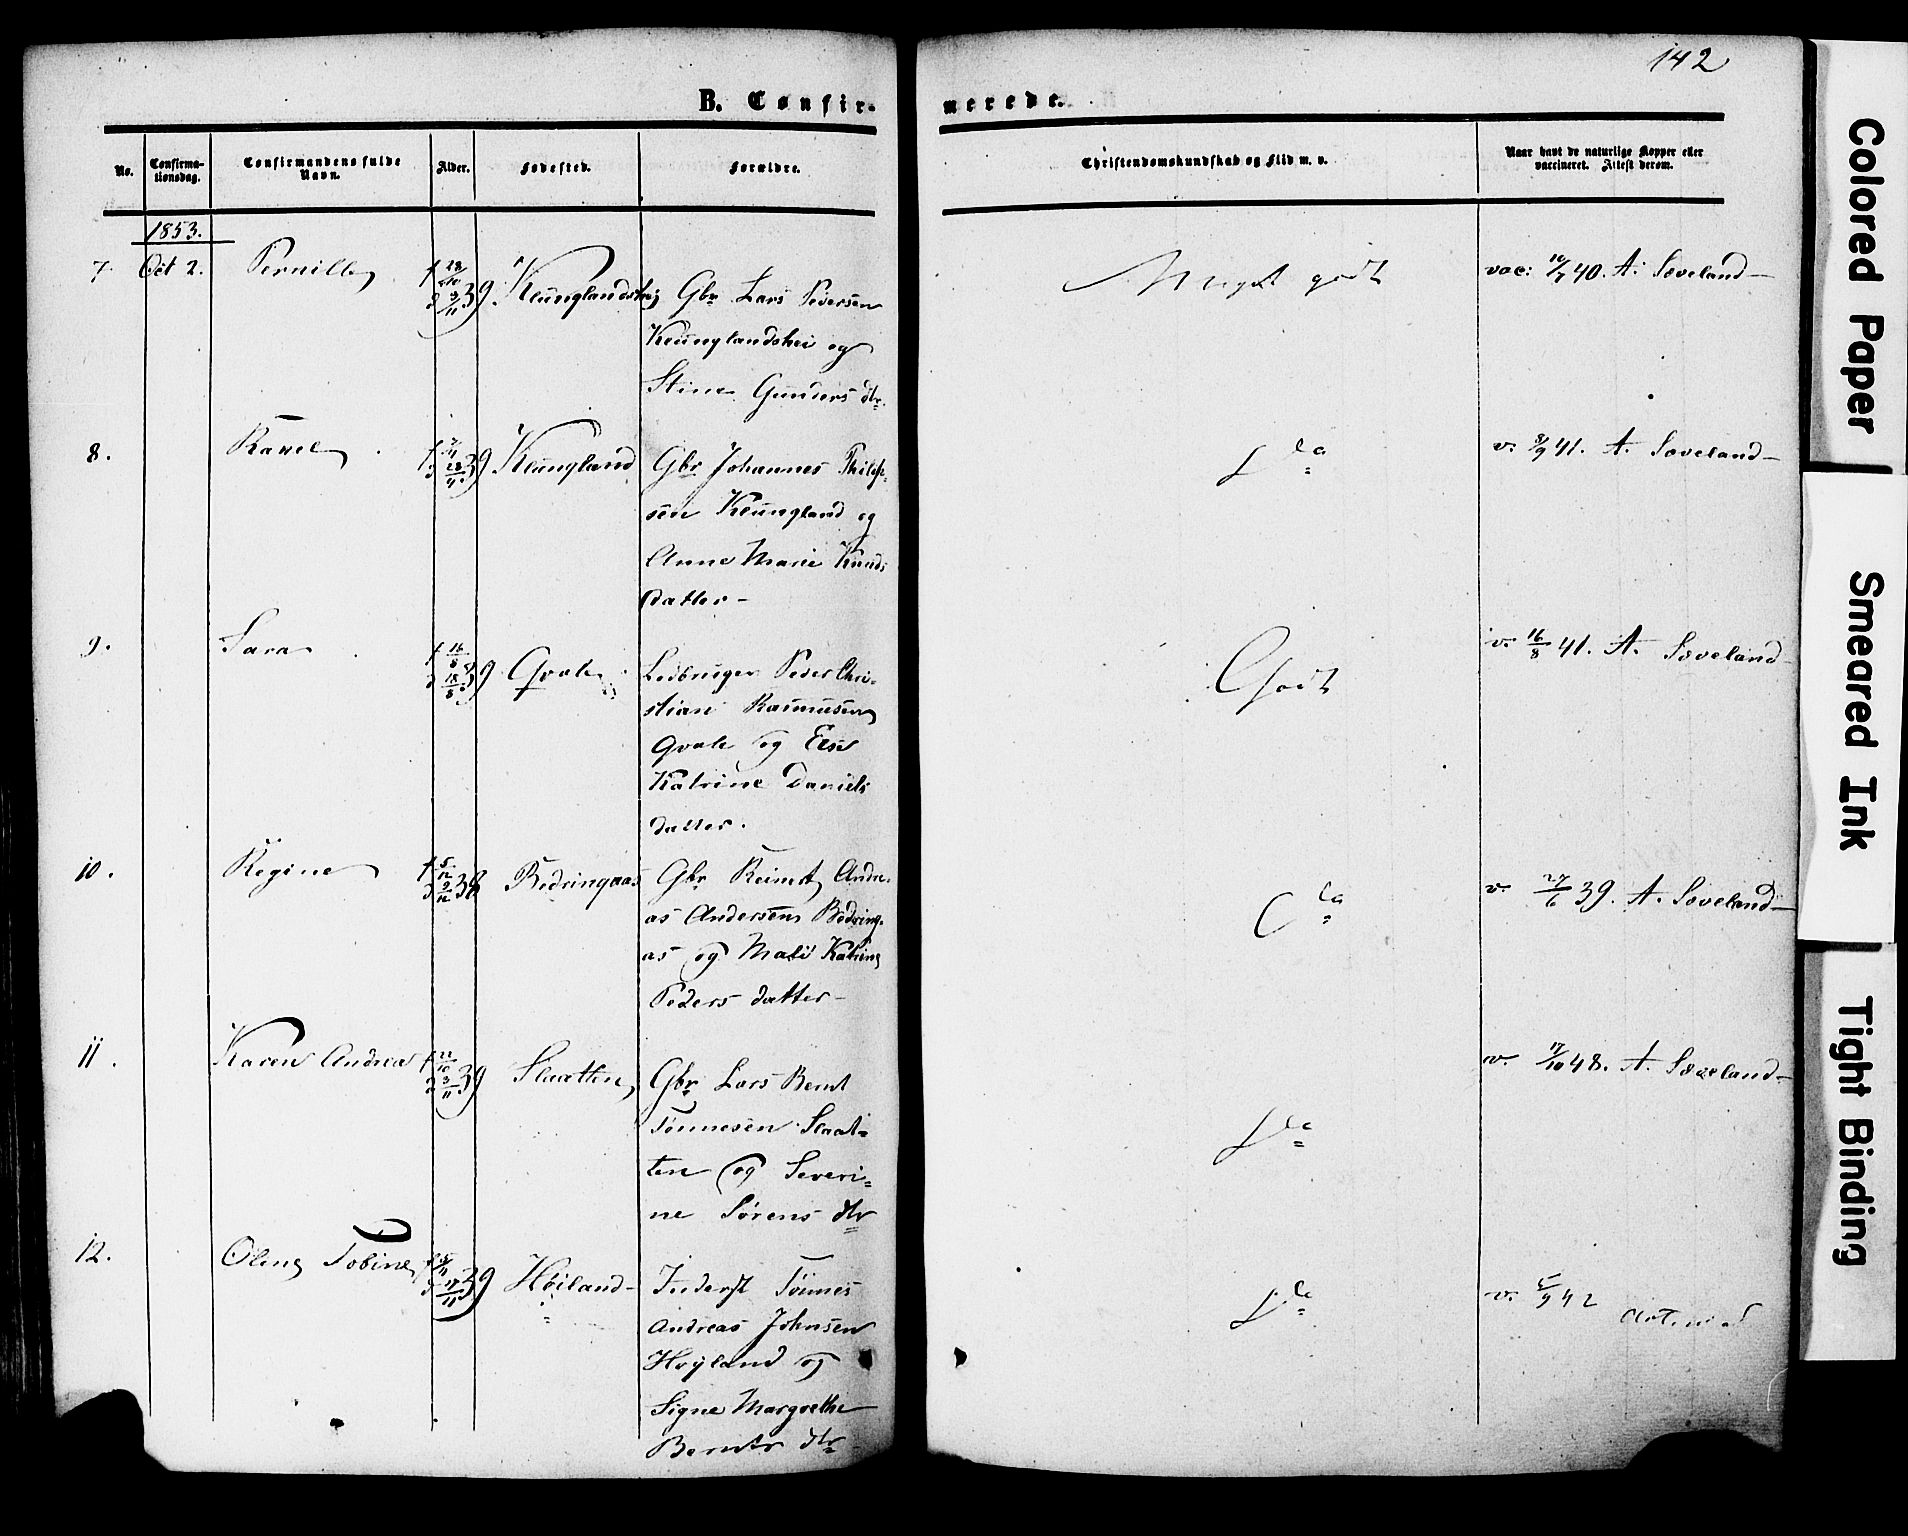 142
B. Confir-
merede.
No.
Confirma-
tionsdag.
Confirmandens fulde
Navn.
Alder.
Fødested.
Forældre.
Christendomskundskab og Flid m. v.
Naar havt de naturlige Kopper eller
vaccineret. Attest derom.
1853.
7. Oct 2. Pernille f 28/10 d 3/11 39 Klunglandshei Gbr Lars Pedersen
Klunglandshei og
Stine Gunders dtr.
Meget godt
vac: 10/7 40. A. Sæveland
8. Rakel f 7/4 d 28/4 39 Klungland Gbr Johannes Philip-
sen Klungland og
Anne Marie Knuds
datter -
do
v. 8/9 41. A. Sæveland
9. Sara f 16/8 d 18/8 39 Qvale Ledbruger Peder Chri-
stian Rasmusen
Qvale og Else
Katrine Daniels
datter.
Godt
v. 16/8 41. A. Sæveland
10. Regine f 5/12 d 9/12 38 Bedringaas Gbr Reinert Andre-
as Andersen Bedring-
as og Mali Katrine
Peders datter -
do
v. 27/6 39. A. Sæveland
11. Karen Andrea f 22/10 d 3/11 39 Slaatten Gbr Lars Bernt
Tønnesen Slaat-
ten og Severi-
ne Sørens dtr
do
v. 17/10 48. A. Sæveland
12. Olene Tobine f 5/11 d 17/11 39 Høiland Inderst Tønnes
Andreas Johnsen
Høyland og
Signe Margrethe
Bernts dtr
do
v. 5/9 42
Colored Paper
Smeared Ink
Tight Binding